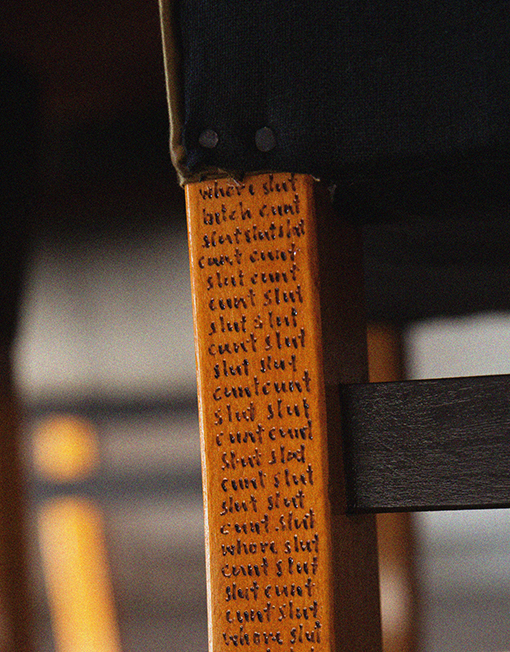 whore slut
bitch cunt
slutslutslut
cunt cunt
slut cunt
cunt slut
slut slut
cunt slut
slut slut
cuntcunt
slut slut
cuntcunt
slut slut
cunt slut
slut slut
cunt slut
whore slut
cunt slut
slut cunt
cunt slut
whore slut